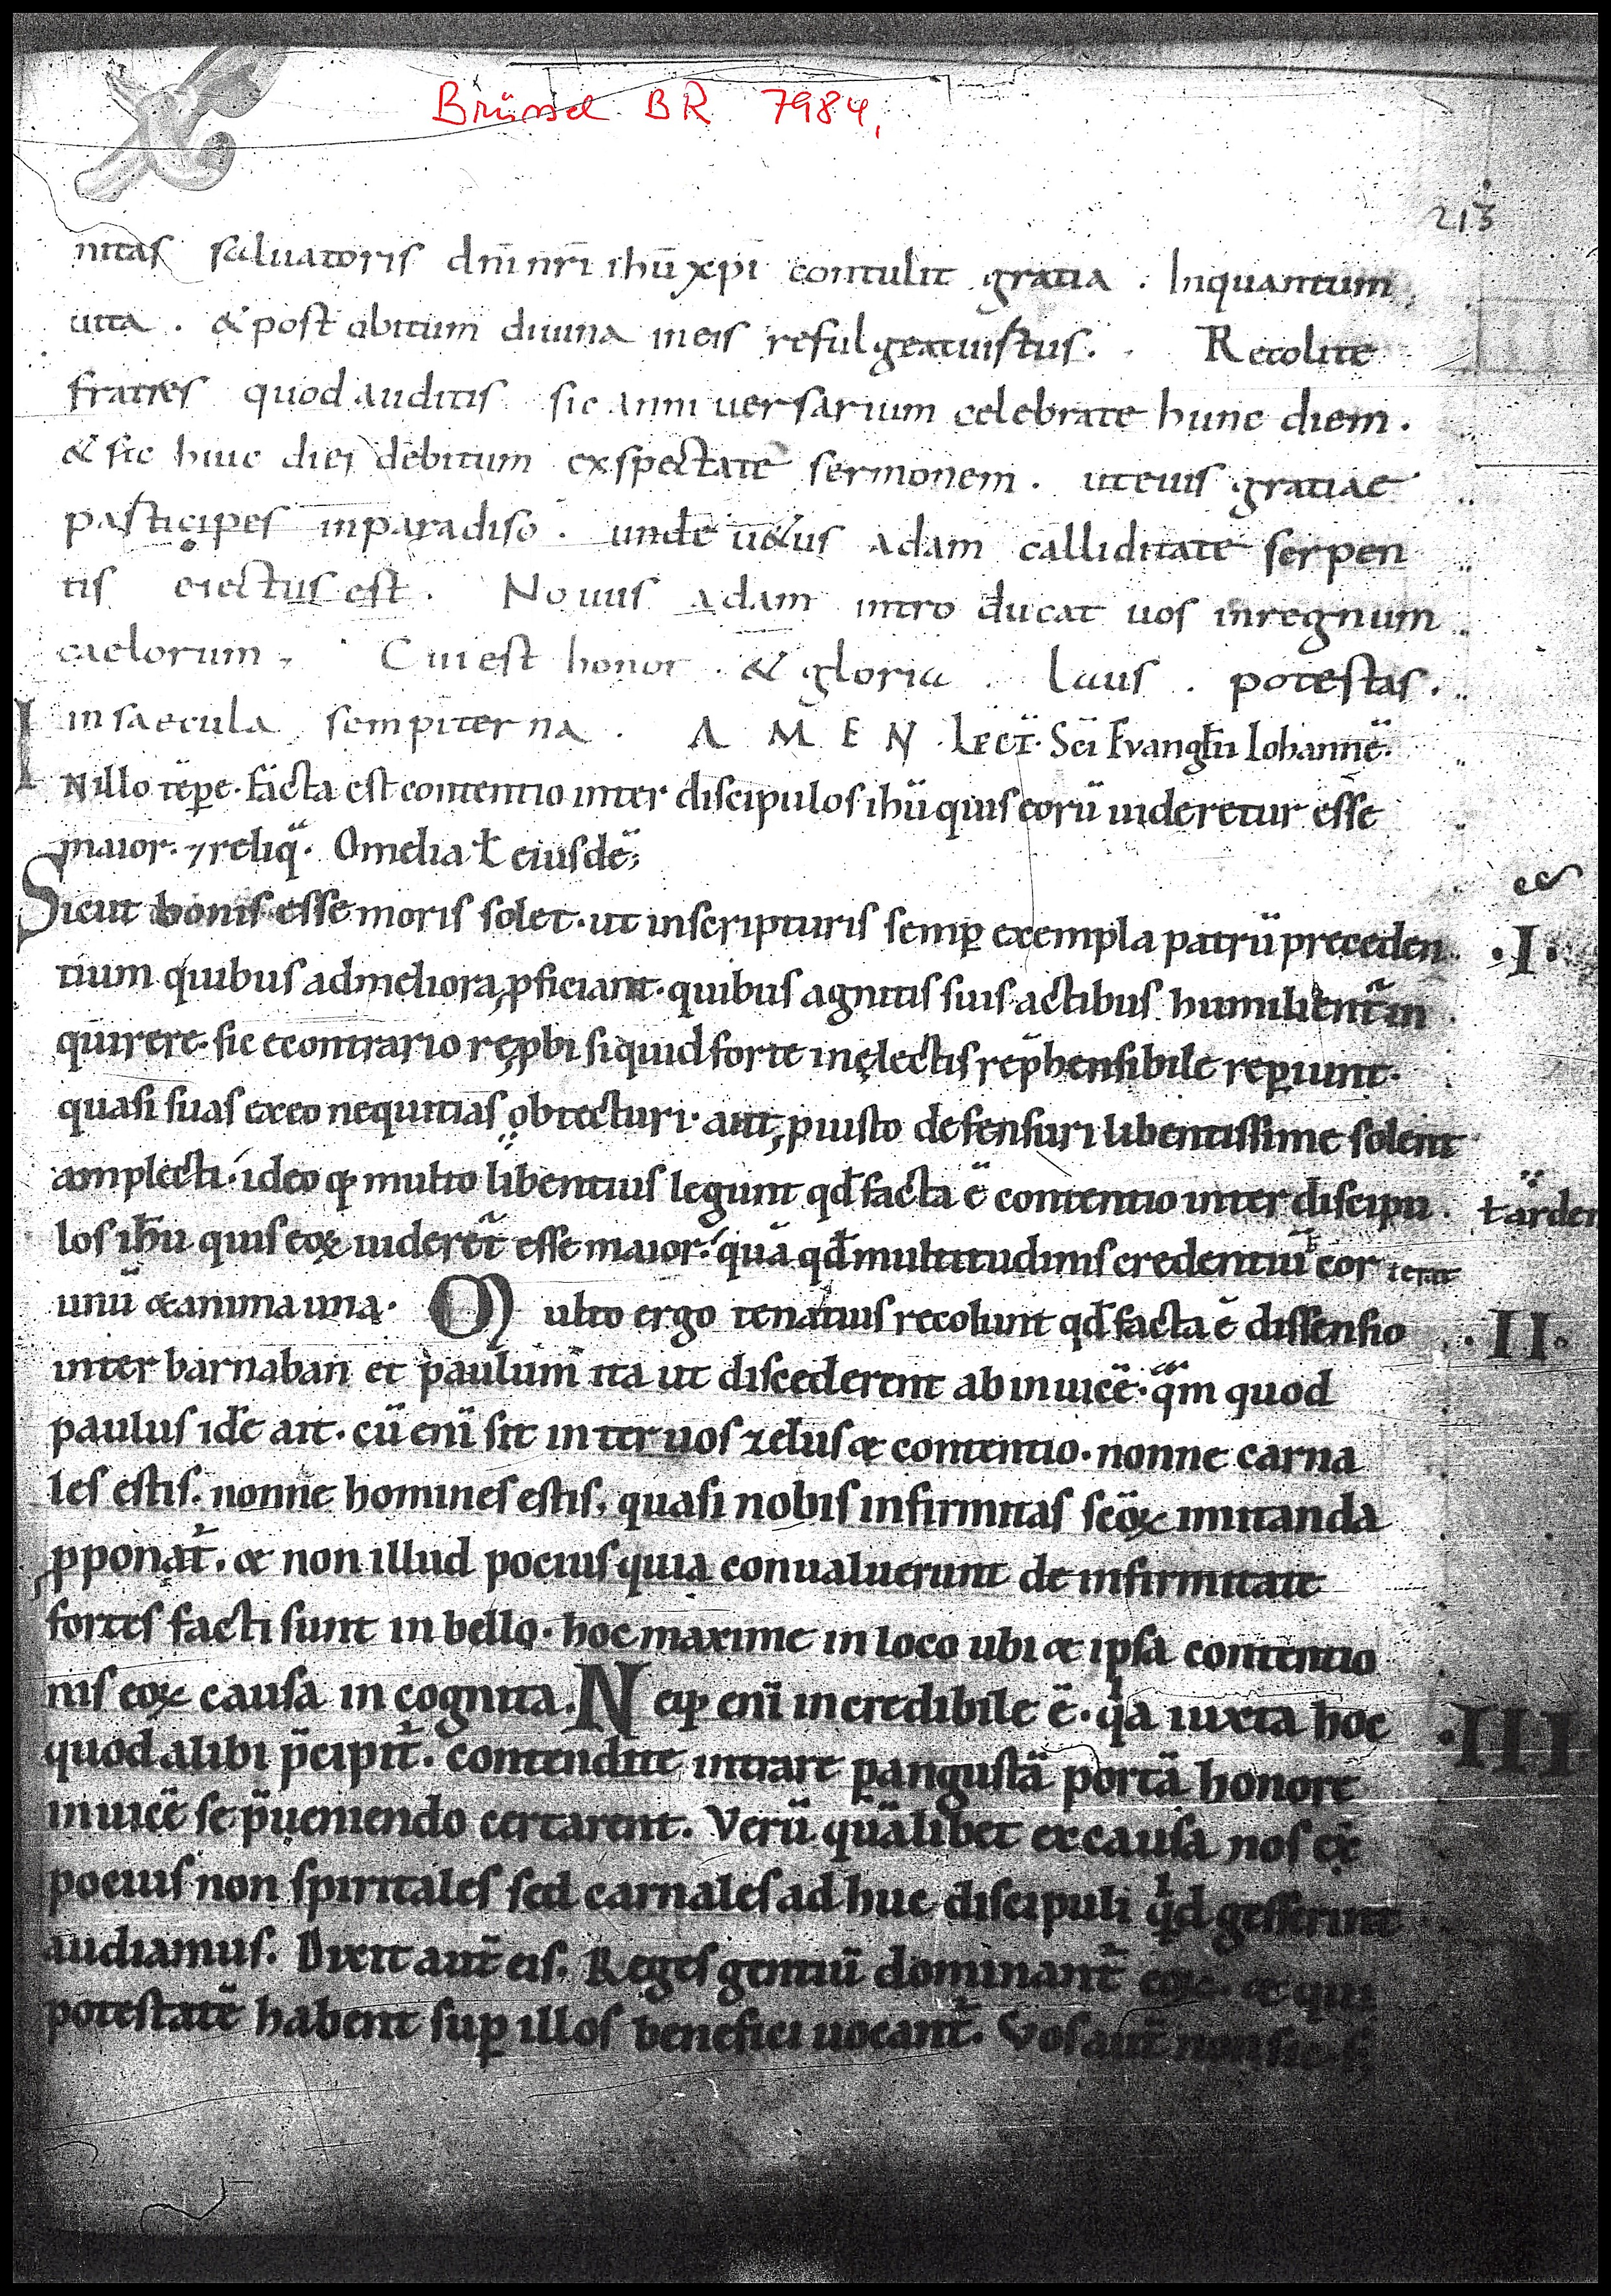 Brüssel BR 7984,
213
nitas saluatoris dn̄i nr̄i ihū xp̄i contulit gratia . Inquantum
uita . & post obitum diuina ineis refulgeat uirtus . Recolite
fratres quod auditis sic anniuersarium celebrate hunc diem .
& sic huic diei debitum exspectate sermonem . uteius gratiae
participes inparadiso . unde u&us adam calliditate serpen
tis eiectus est . Nouus adam introducat uos inregnum
caelorum , Cui est honor . & gloria . laus . potestas .
in saecula sempiterna . A M E N . Lect̄. Sc̄i Evangł̄ii Iohannē.
I Nillo tēpe . Facta est contentio inter discipulos ihū quis eorū uideretur esse
maior . ⁊ reliq̄ . Omelia ł eiusdē ;
Sicut bonis esse moris solet . ut inscripturis semꝑ exempla patrū preceden · I ·
tium quibus admeliora ꝓficiant . quibus agnitis suis actibus humilient̄ in
quirere . sic econtrario reꝓbi siquid forte inęlectis rep̄hensibile reꝑiunt .
quasi suas exeo nequitias obtecturi . aut ꝓ iusto defensuri libentissime solent
amplecti . ideoq; multo libentius legunt qđ facta ē contentio inter discipu ł arden
los ihū quis eoꝝ uideret̄ esse maior . quā qđ multitudinis credentiū cor erat
unū & anima una . Multo ergo tenatius recolunt qđ facta ē dissensio · II ·
inter barnaban et paulum ita ut discederent ab inuicē . q̄m quod
paulus idē ait . cū enī sit inter uos zelus & contentio . nonne carna
les estis . nonne homines estis . quasi nobis infirmitas sc̄oꝝ imitanda
ꝓponat̄ . & non illud pocius quia conualuerunt de infirmitate
fortes facti sunt in bello . hoc maxime in loco ubi & ipsa contentio
nis eoꝝ causa incognita . Neq; enī incredibile ē . q̄a iuxta hoc · III
quod alibi p̄cipit̄ . contendite intrare ꝑ angustā portā honore
inuicē se p̄ueniendo certarent . Verū quālibet ex causa nos ex
pocius non spiritales sed carnales ad huc discipuli qͥd gesserint
audiamus . Dixit aut̄ eis . Reges gentiū dominant̄ eoꝝ . & qui
potestatē habent suꝑ illos benefici uocant̄ . Vos aut̄ non sic . s;